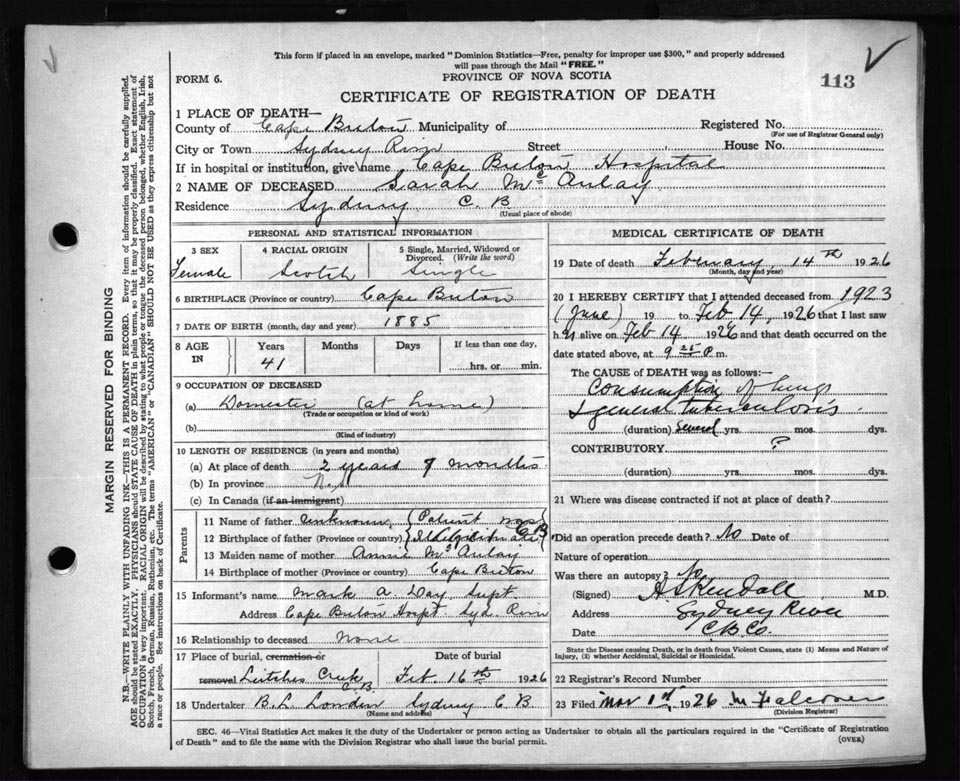 This form if placed in an envelope, marked "Dominion Statistics—Free, penalty for improper use $300," and properly addressed
will pass through the Mail "FREE."
FORM 6.
PROVINCE OF NOVA SCOTIA
113
CERTIFICATE OF REGISTRATION OF DEATH
1 PLACE OF DEATH—
County of Cape Breton Municipality of Registered No.
(For use of Registrar General only)
City or Town Sydney River Street House No.
If in hospital or institution, give name Cape Breton Hospital
2 NAME OF DECEASED Sarah McAulay
Residence Sydney C. B
(Usual place of abode)
PERSONAL AND STATISTICAL INFORMATION
3 SEX 4 RACIAL ORIGIN 5 Single, Married, Widowed or
Divorced. (Write the word)
Female Scotch Single
6 BIRTHPLACE (Province or country) Cape Breton
7 DATE OF BIRTH (month, day and year) 1885
8 AGE IN Years Months Days If less than one day,
41 hrs. or min.
9 OCCUPATION OF DECEASED
(a) Domestic (at home)
(Trade or occupation or kind of work)
(b)
(Kind of industry)
10 LENGTH OF RESIDENCE (in years and months)
(a) At place of death 2 years 7 months
(b) In province
(c) In Canada (if an immigrant)
Parents
11 Name of father unknown (Patient was
12 Birthplace of father (Province or country) Illegitimate) C B
13 Maiden name of mother Annie McAulay
14 Birthplace of mother (Province or country) Cape Breton
15 Informant's name Mark A Day, Supt.
Address Cape Breton Hospt Syd River
16 Relationship to deceased None
17 Place of burial, cremation or Date of burial
removal Leitches Creek C. B. Feb. 16th 1926
18 Undertaker B. L. London Sydney C B
(Name and address)
MEDICAL CERTIFICATE OF DEATH
19 Date of death February 14th 1926
(Month, day and year)
20 I HEREBY CERTIFY that I attended deceased from 1923
(June) 19 to Feb 14 1926 that I last saw
her alive on Feb 14 1926 and that death occurred on the
date stated above, at 9 25 P. m.
The CAUSE OF DEATH was as follows:—
Consumption of lungs
& general tuberculosis.
(duration) Several yrs. mos. dys.
CONTRIBUTORY ?
(duration) yrs. mos. dys.
21 Where was disease contracted if not at place of death?
Did an operation precede death? No Date of
Nature of operation
Was there an autopsy? No
(Signed) A S Kendall M.D.
Address Sydney River
Date C. B. Co.
State the Disease causing Death, or in death from Violent Causes, state (1) Means and Nature of
Injury, (2) whether Accidental, Suicidal or Homicidal.
22 Registrar's Record Number
23 Filed Mar 1st, 1926 M Falconer
(Division Registrar)
SEC. 46—Vital Statistics Act makes it the duty of the Undertaker or person acting as Undertaker to obtain all the particulars required in the "Certificate of Registration
of Death" and to file the same with the Division Registrar who shall issue the burial permit.
(OVER)
MARGIN RESERVED FOR BINDING
N.B.—WRITE PLAINLY WITH UNFADING INK—THIS IS A PERMANENT RECORD. Every item of information should be carefully supplied.
AGE should be stated EXACTLY. PHYSICIANS should STATE CAUSE OF DEATH in plain terms, so that it may be properly classified. Exact statement of
OCCUPATION is very important. RACIAL ORIGIN will be described by stating to what people or tongue the deceased person belonged, whether English, Irish,
Scotch, French, German, Russian, Ruthenian, etc. The terms "AMERICAN" or "CANADIAN" SHOULD NOT BE USED as they express citizenship but not
a race or people. See instructions on back of Certificate.